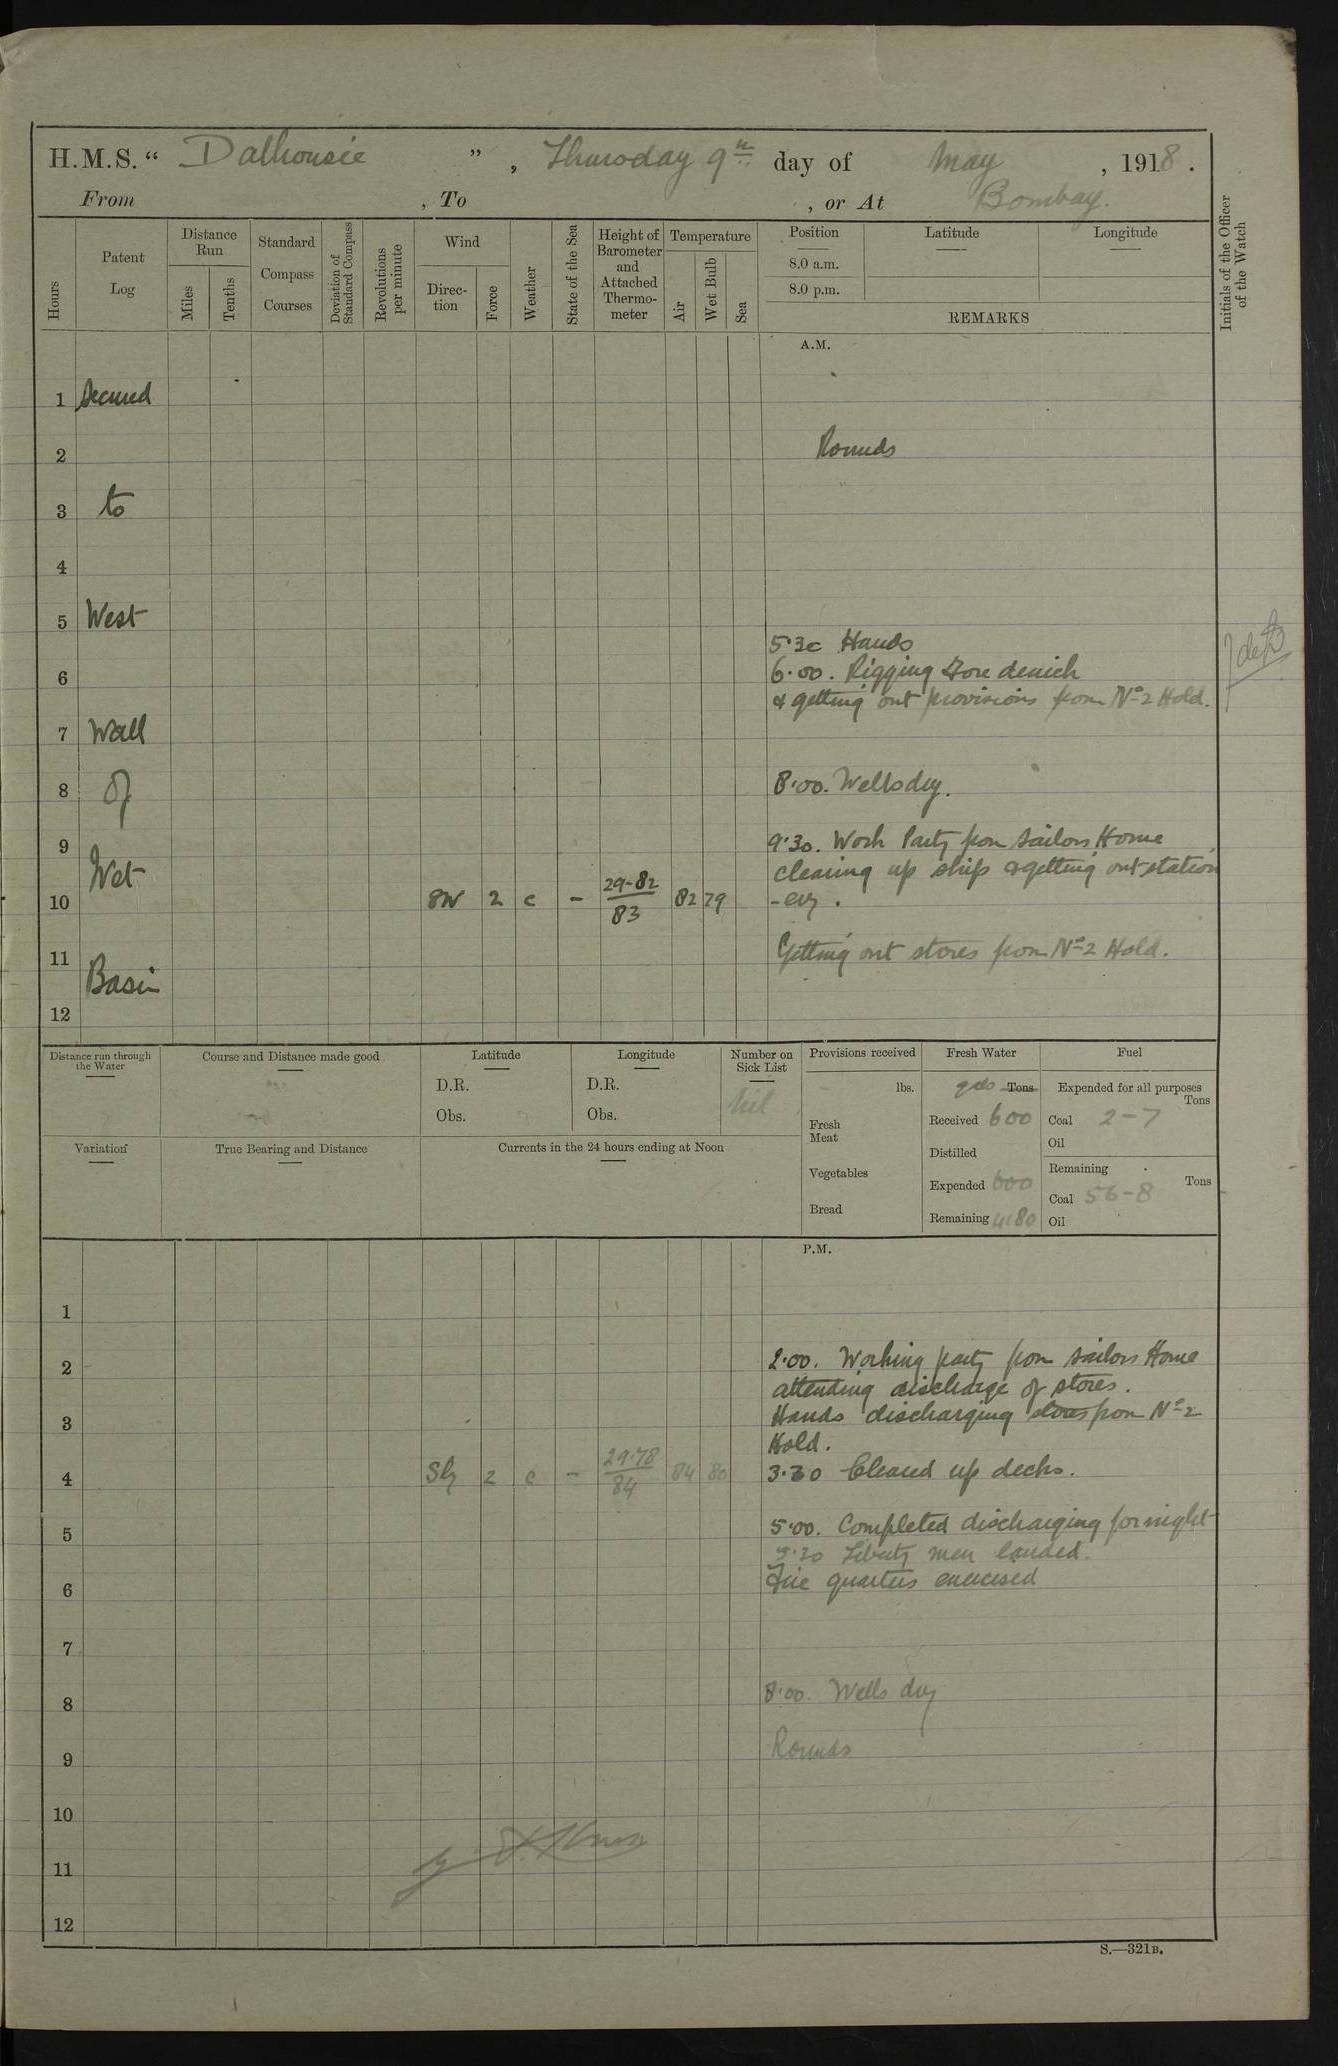 H.M.S. “ Dalhousie ” , Thursday 9th day of May , 1918 .
From , To , or At Bombay.
Hours
Patent Log
Distance Run
Miles
Tenths
Standard Compass Courses
Deviation of Standard Compass
Revolutions per minute
Wind
Direction
Force
Weather
State of the Sea
Height of Barometer and Attached Thermometer
Temperature
Air
Wet Bulb
Sea
Position
Latitude
Longitude
8.0 a.m.
8.0 p.m.
REMARKS
Initials of the Officer of the Watch
A.M.
1 Secured
2 Rounds
3 to
4
5 West
5.30 Hands
6 6.00. Rigging Fore derrick
& getting out provisions from No 2 Hold.
7 Wall
8 of 8.00. Wells dry.
9 9.30. Work Party from Sailors Home
Wet clearing up ship & getting out station
10 SW 2 c - 29-82 83 82 79 -ery.
11 Getting out stores from No 2 Hold.
Basin
12
Distance run through the Water
Course and Distance made good
Latitude
D.R.
Obs.
Longitude
D.R.
Obs.
Number on Sick List
Nil
Variation
True Bearing and Distance
Currents in the 24 hours ending at Noon
Provisions received
lbs.
Fresh Meat
Vegetables
Bread
Fresh Water
Tons
Received 600
Distilled
Expended 600
Remaining 4180
Fuel
Expended for all purposes
Tons
Coal 2-7
Oil
Remaining
Tons
Coal 56-8
Oil
P.M.
1
2 2.00. Working party from Sailors Home
attending discharge of stores.
3 Hands discharging stores from No 2
Hold.
4 Sly 2 c - 29.78 84 84 80 3.30 Cleared up decks.
5 5.00. Completed discharging for night
5.30 Liberty men landed.
6 Fire quarters exercised
7
8 8.00. Wells dry
9 Rounds
10
11
12
S.—321B.